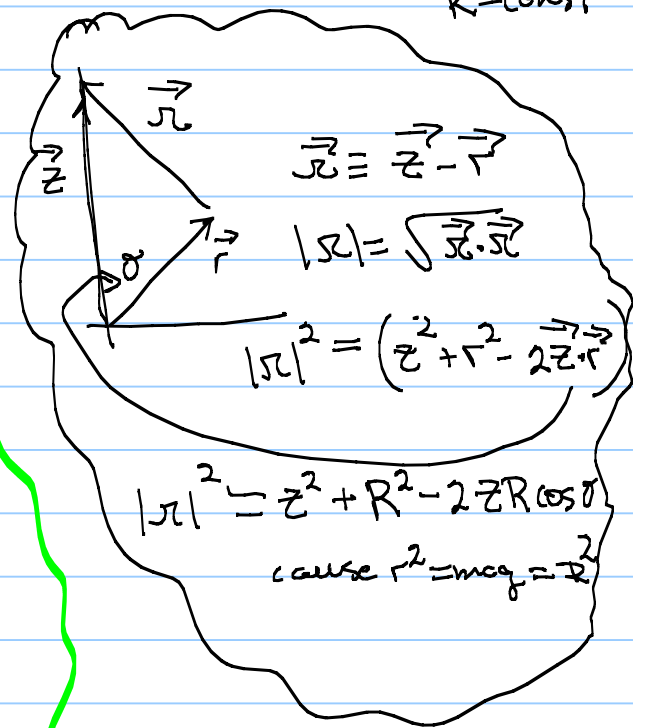 R=const
𝓇⃗
z⃗
𝓇⃗ ≡ z⃗ - r⃗
θ
r⃗
|𝓇| = √(𝓇⃗·𝓇⃗)
|𝓇|² = (z² + r² - 2z⃗·r⃗)
|𝓇|² = z² + R² - 2ZR cosθ
cause r² = mag = R²